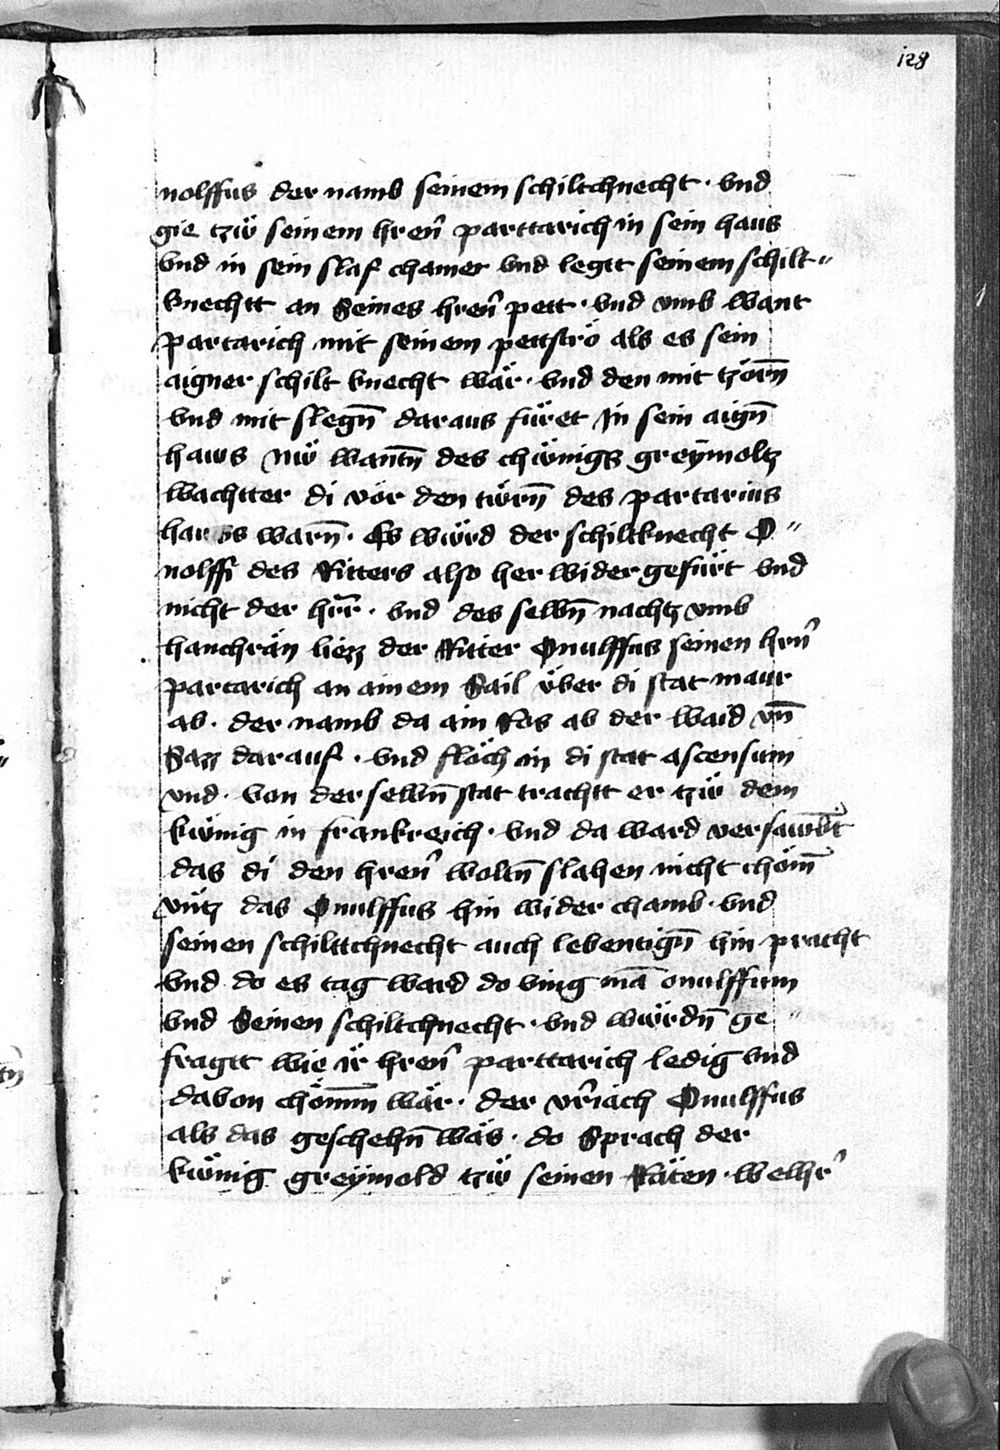 128
nolffus der namb seinem schiltchnecht · vnd
gie tzẅ seinem hren̄ parttarich in sein haus
vnd in sein slaf chamer vnd legtt seinem schilt〃
knechtt an Seines hren̄ pett · vnd vmb want
partarich mit seinem pettströ als es sein
aigner schilt knecht wär · vnd den mit tzörn̄
vnd mit slegn̄ daraus füret In sein aign̄
haws Nẅ wantn̄ des chẅnigs greymoltz
wachtter di vör den törn̄ des partarius
haus warn̄ · Es wẅrd der schiltknecht O〃
nolffi des Ritters also her wider gefürt vnd
nicht der hr̄r · vnd des selbn̄ nachtz vmb
hanchrän liezz der Ritter Onulffus seinen hrn̄
partarich an ainem Sail über di stat maur
ab · der namb da ain Ros ab der waid vn̄
Sazz darauf · vnd flöch in di stat ascensum
vnd · von der selbn̄ stat trachtt er tzẅ dem
kẅnig in frankreich · vnd da ward versawbt
das di den hren̄ woltn̄ slahen nicht chöm̄
vntz das Onulffus hin wider chamb · vnd
seinen schilttchnecht auch lebentign̄ hin pracht
vnd do es tag ward do ving mā onulffum
vnd Seinen schiltchnecht · vnd wẅrdn̄ ge〃
fragtt wie ir hren̄ parttarich ledig vnd
davon chömm̄ wär · der vr̄iach Onulffus
als das geschehn̄ wäs · do Sprach der
kẅnig greymold tzẅ seinen Räten · welhr̄